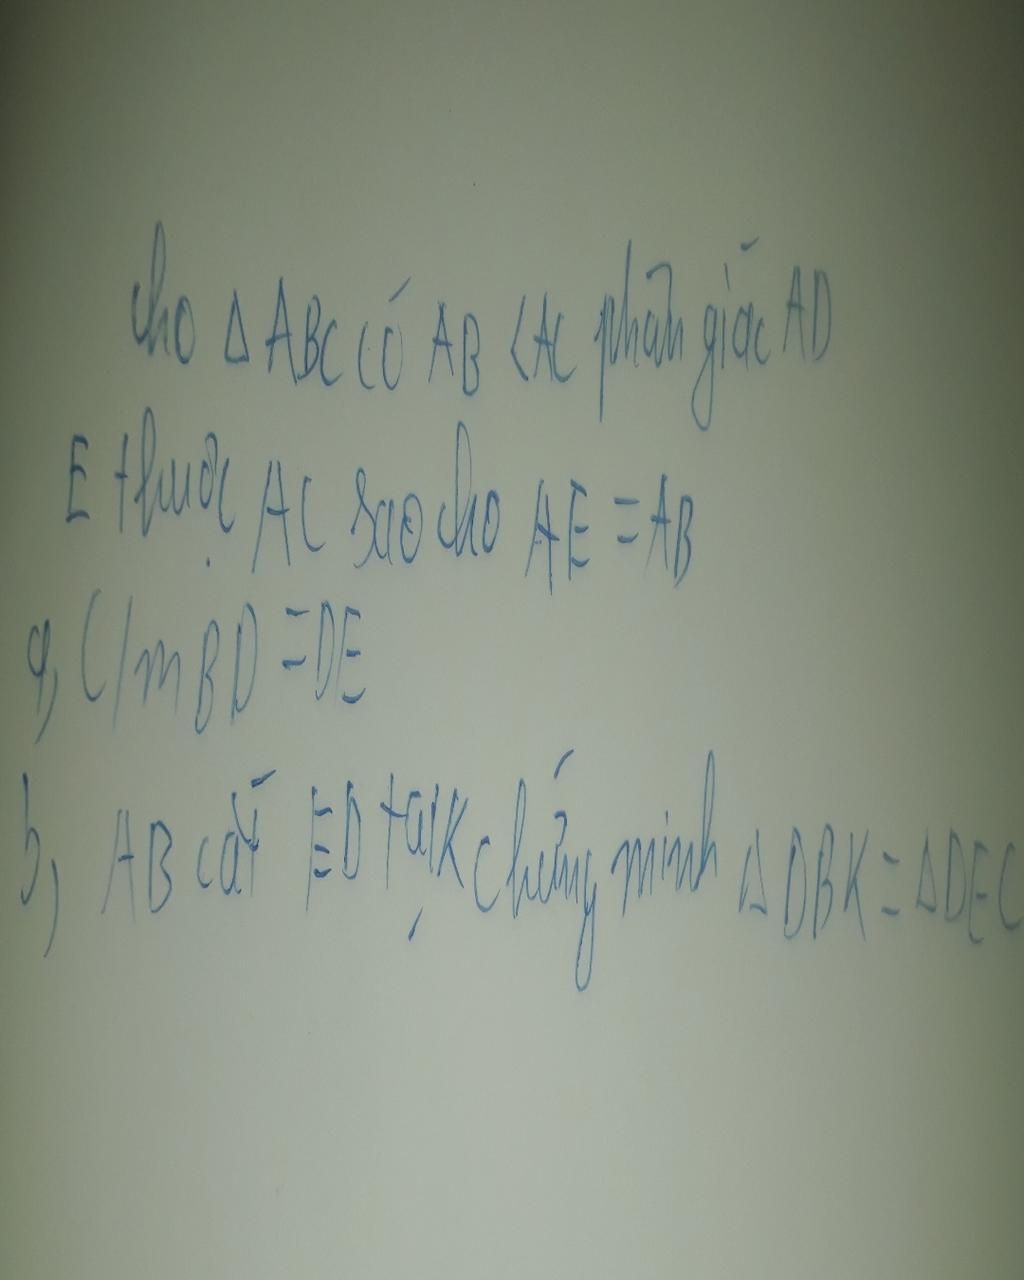 cho Δ ABC có AB < AC phân giác AD
E thuộc AC sao cho AE = AB
a, C/m BD = DE
b, AB cắt ED tại K chứng minh Δ DBK = Δ DEC